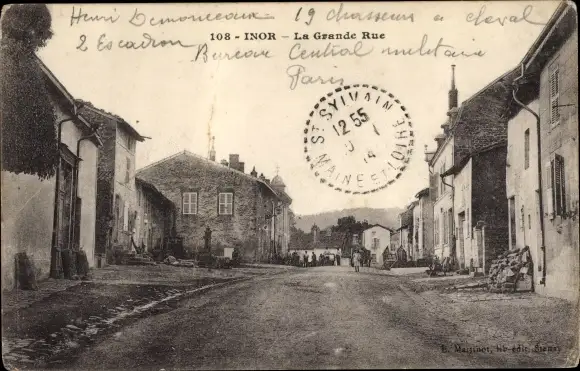 Henri Demonceaux 19 chasseurs a cheval
2 Escadron
108 - INOR - La Grande Rue
Bureau Central militaire
Paris
ST SYLVAIN
12 55
14
MAINE ET LOIRE
édit. Stenay